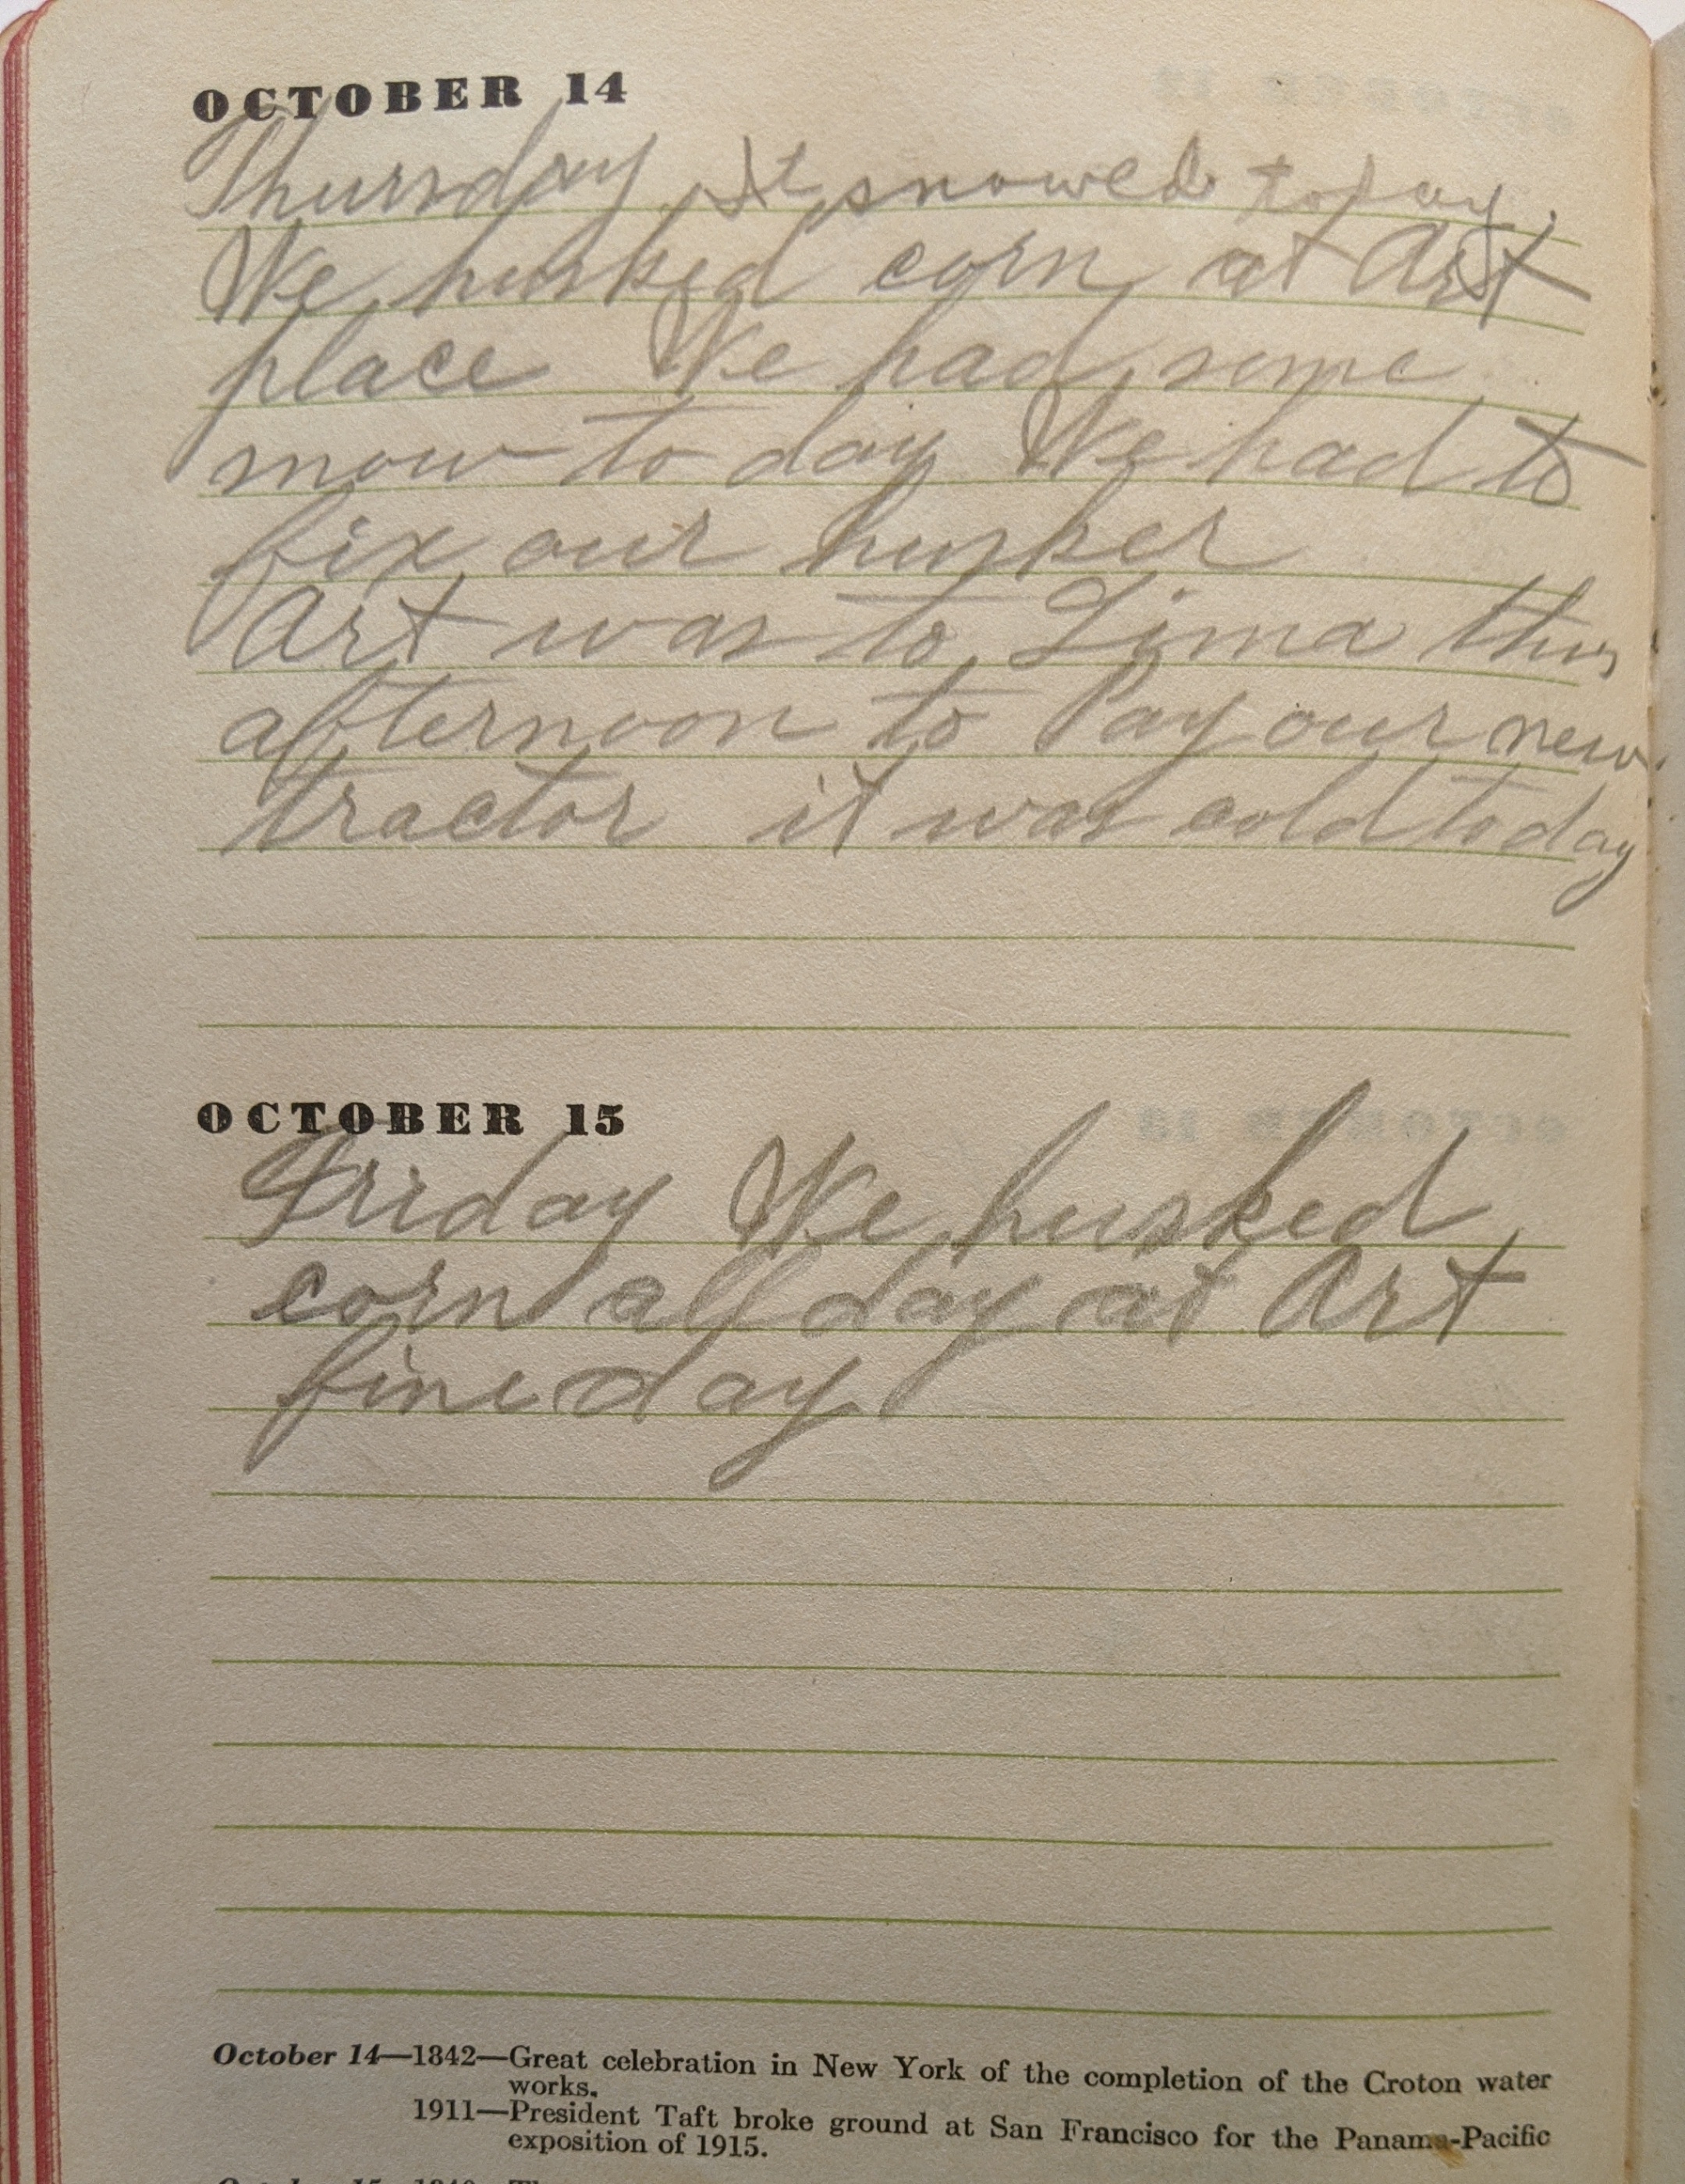 OCTOBER 14
Thursday It snowed today.
We husked corn at Art
place We had some
snow to day We had to
fix our husker
Art was to Lima this
afternoon to Pay our new
tractor it was cold today
OCTOBER 15
Friday We husked
corn all day at Art
fine day
October 14—1842—Great celebration in New York of the completion of the Croton water
works.
1911—President Taft broke ground at San Francisco for the Panama-Pacific
exposition of 1915.